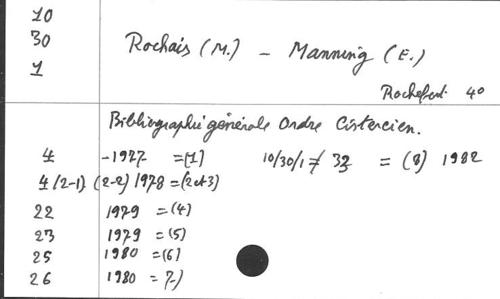 10
30 Rochais (M.) - Manning (E.)
1
Rochefort 40
Bibliographie générale Ordre Cistercien.
4 -1977 =(1) 10/30/1 = 32 = (8) 1982
4/(2-1) (2-2) 1978 =(2et3)
22 1979 =(4)
23 1979 =(5)
25 1980 =(6)
26 1980 = 7-)